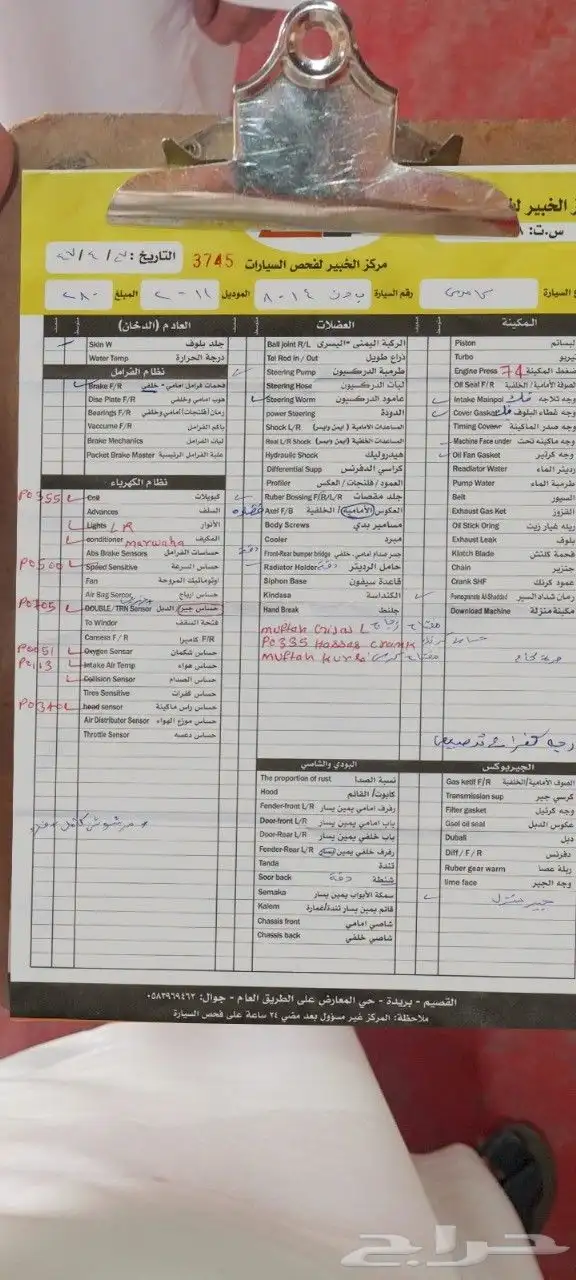 ز الخبير لف
س.ت:
مركز الخبير لفحص السيارات 3745 التاريخ:
ع السيارة رقم السيارة ٨٠١٤ الموديل ٢٠١١ المبلغ ٢٨٠
المكينة
Piston بساتم
Turbo تيربو
Engine Press 74 ضغط المكينة
Oil Seal F/R الصوفة الأمامية / الخلفية
Intake Mainpol وجه ثلاجه فك
Cover Gasket وجه غطاء البلوف فك
Timing Cover وجه صدر الماكينة
Machine Face under وجه ماكينه تحت
Oil Fan Gasket وجه كرتير
Readiator Water رديتر الماء
Pump Water طرمبة الماء
Belt السيور
Exhaust Gas Ket القزوز
Oil Stick Oring ربله غيار زيت
Exhaust Leak بلوف
Klotch Blade فحمة كلتش
Chain جنزير
Crank SHF عمود كرنك
رمان شداد السير
Download Machine مكينة منزلة
الجيربوكس
Gas ketif F/R الصوف الأمامية/الخلفية
Transmission sup كرسي جير
Filter gasket وجه كرتيل
Gaol oil seal عكوس الدبل
Dubali دبل
Diff / F / R دفرنس
Ruber gear warm ربلة عصا
lime face وجه الجير
جير منزل
العضلات
Ball joint R/L الركبة اليمنى - اليسرى
Tai Rod in / Out ذراع طويل
Steering Pump طرمبة الدركسيون
Steering Hose لبات الدركسيون
Steering Worm عامود الدركسيون
power Steering الدودة
Shock L/R المساعدات الأمامية (يمين ويسر)
Real L/R Shock المساعدات الخلفية (يمين ويسر)
Hydraulic Shock هيدروليك
Differential Supp كراسي الدفرنس
Profiler العمود / فلنجات / العكس
Ruber Bossing F/B/L/R جلد مقصات
Axel F/B العكوس الأمامية / الخلفية
Body Screws مسامير بدي
Cooler مبرد
Front-Rear bumper bridge جسر صدام امامي - خلفي دقة
Radiator Holder حامل الرديتر دقة
Siphon Base قاعدة سيفون
Kindasa الكنداسة
Hand Break جلنط
muftah Gzjaz L مفتاح زجاج
P0335 Hassas Crank حساس كرنك
muftah Kursi مفتاح كرسي
البودي والشاصي
The proportion of rust نسبة الصدا
Hood كابوت / القائم
Fender-front L/R رفرف امامي يمين يسار
Door-front L/R باب امامي يمين يسار
Door-Rear L/R باب خلفي يمين يسار
Fender-Rear L/R رفرف خلفي يمين يسار
Tanda تندة
Soor back شنطة دقة
Semaka سمكة الأبواب يمين يسار
Kalem قائم يمين يسار تندة/غمارة
Chassis front شاصي امامي
Chassis back شاصي خلفي
العادم (الدخان)
Skin W جلد بلوف
Water Temp درجة الحرارة
نظام الفرامل
Brake F/R فحمات فرامل امامي - خلفي
Disc Plate F/R هوب امامي وخلفي
Bearings F/R رمان (فلنجات) امامي وخلفي
Vaccume F/R باكم الفرامل
Brake Mechanics لبات الفرامل
Packet Brake Master علبة الفرامل الرئيسية
نظام الكهرباء
P0355 Coil كويلات
Advances السلف
Lights LR الأنوار
conditioner marwaha المكيف
Abs Brake Sensors حساسات الفرامل
P0500 Speed Sensitive حساس السرعة
Fan اوتوماتيك المروحة
Air Bag Sensor حساس ارباج
P0705 DOUBLE / TRN Sensor حساس جير / الدبل
To Windor فتحة السقف
Camera F / R كاميرا F/R
P0051 Oxygen Sensor حساس شكمان
P0113 Intake Air Temp حساس هواء
Collision Sensor حساس الصدام
Tires Sensitive حساس كفرات
P0340 head sensor حساس راس ماكينة
Air Distributor Sensor حساس موزع الهواء
Throttle Sensor حساس دعسه
مرشوش كامل
القصيم - بريدة - حي المعارض على الطريق العام - جوال: ٠٥٨٢٩٦٩٤٦٢
ملاحظة: المركز غير مسؤول بعد مضي ٢٤ ساعة على فحص السيارة
حراج